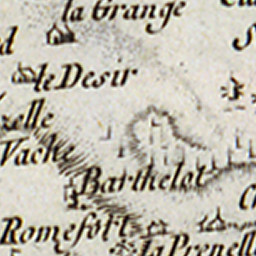 la Grange
le Desir
zelle
Vache
Barthelot
Romefort
la Prenelle